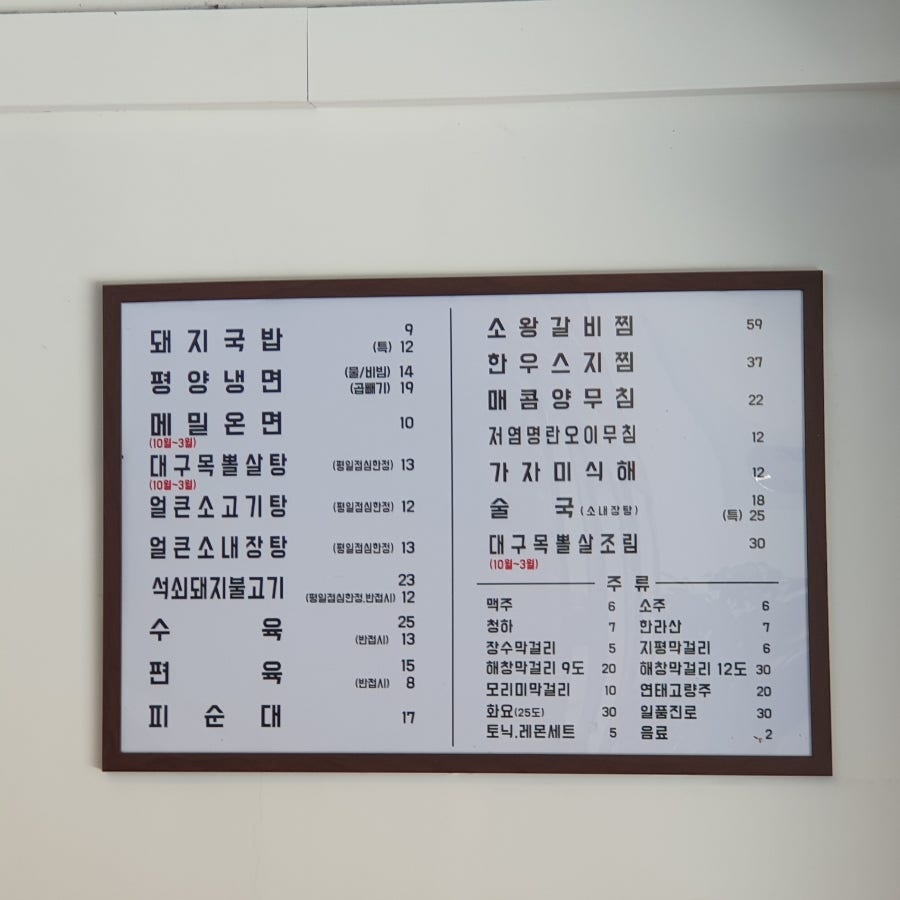 돼지국밥 9
(특) 12
평양냉면 (물/비빔) 14
(곱빼기) 19
메밀온면 10
(10월~3월)
대구목뽈살탕 (평일점심한정) 13
(10월~3월)
얼큰소고기탕 (평일점심한정) 12
얼큰소내장탕 (평일점심한정) 13
석쇠돼지불고기 23
(평일점심한정.반접시) 12
수육 25
(반접시) 13
편육 15
(반접시) 8
피순대 17
소왕갈비찜 59
한우스지찜 37
매콤양무침 22
저염명란오이무침 12
가자미식해 12
술국(소내장탕) 18
(특) 25
대구목뽈살조림 30
(10월~3월)
주류
맥주 6 소주 6
청하 7 한라산 7
장수막걸리 5 지평막걸리 6
해창막걸리 9도 20 해창막걸리 12도 30
모리미막걸리 10 연태고량주 20
화요(25도) 30 일품진로 30
토닉.레몬세트 5 음료 2